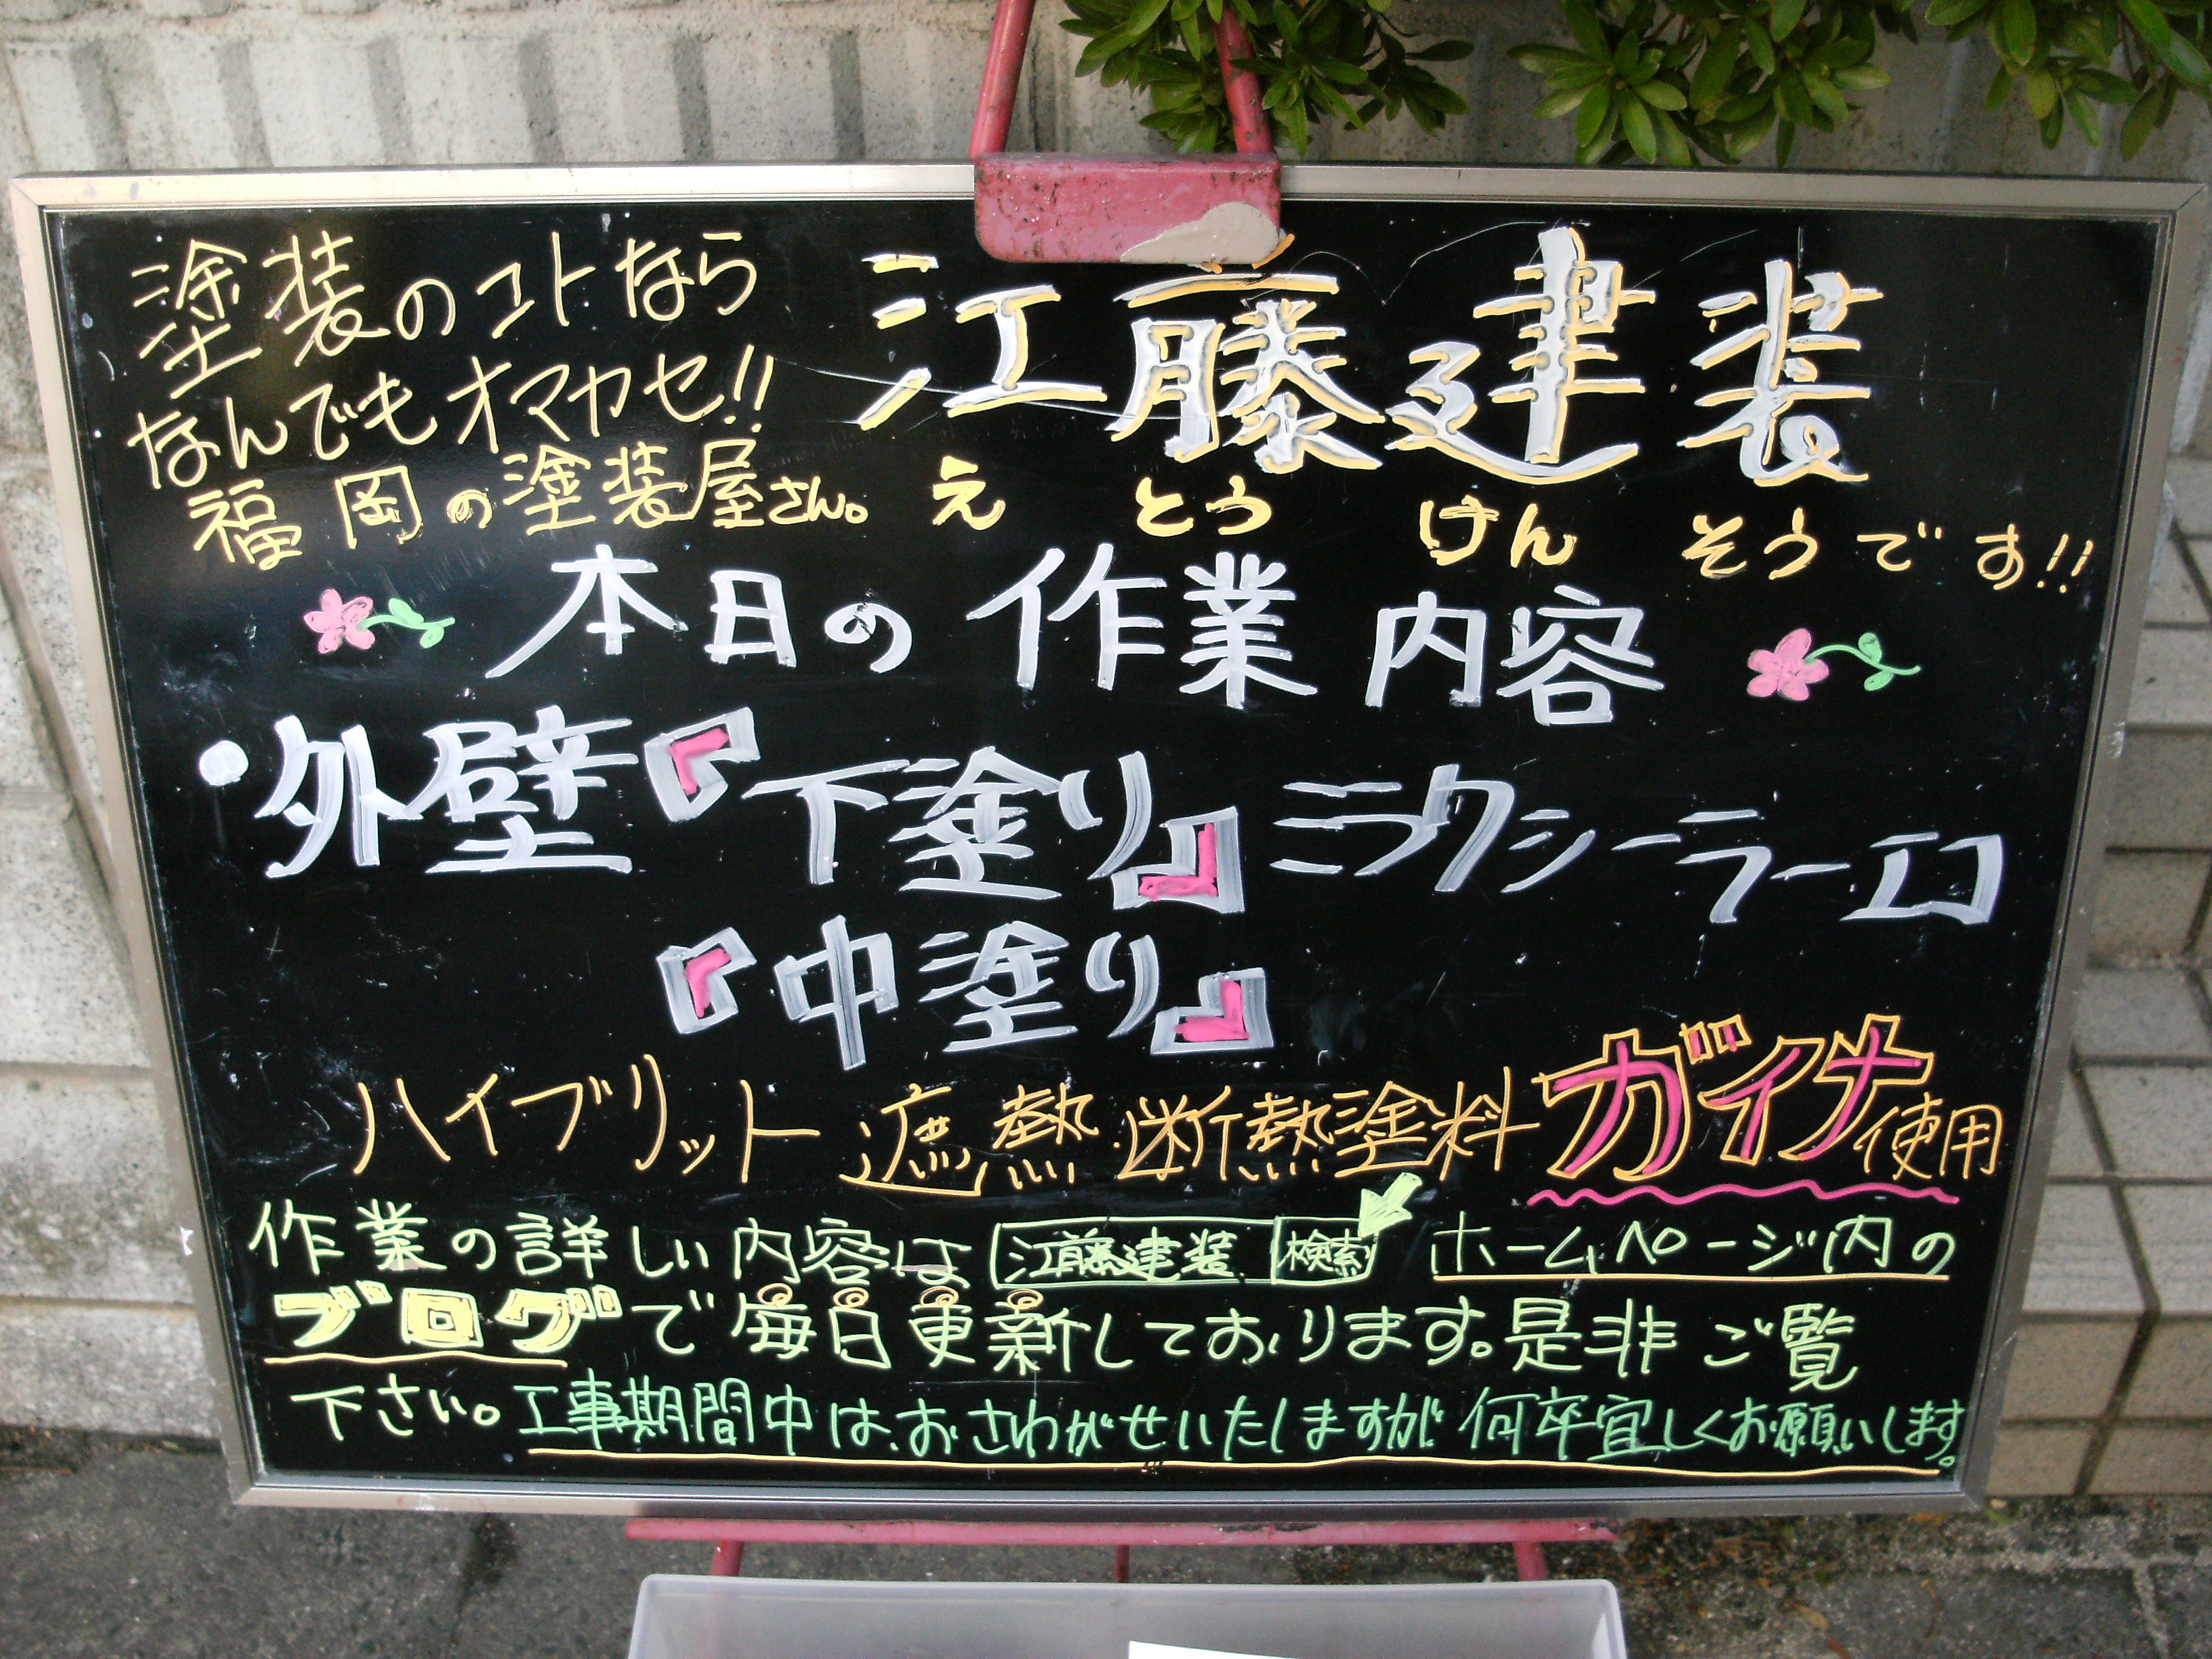 塗装のコトなら
なんでもオマカセ!!
福岡の塗装屋さん。
江藤建装
えとうけんそうです!!
本日の作業内容
・外壁『下塗り』ミラクシーラーエコ
『中塗り』
ハイブリット遮熱・断熱塗料ガイナ使用
作業の詳しい内容は 江藤建装 検索 ホームページ内の
ブログで毎日更新しております。是非ご覧
下さい。工事期間中は、おさわがせいたしますが何卒宜しくお願いします。